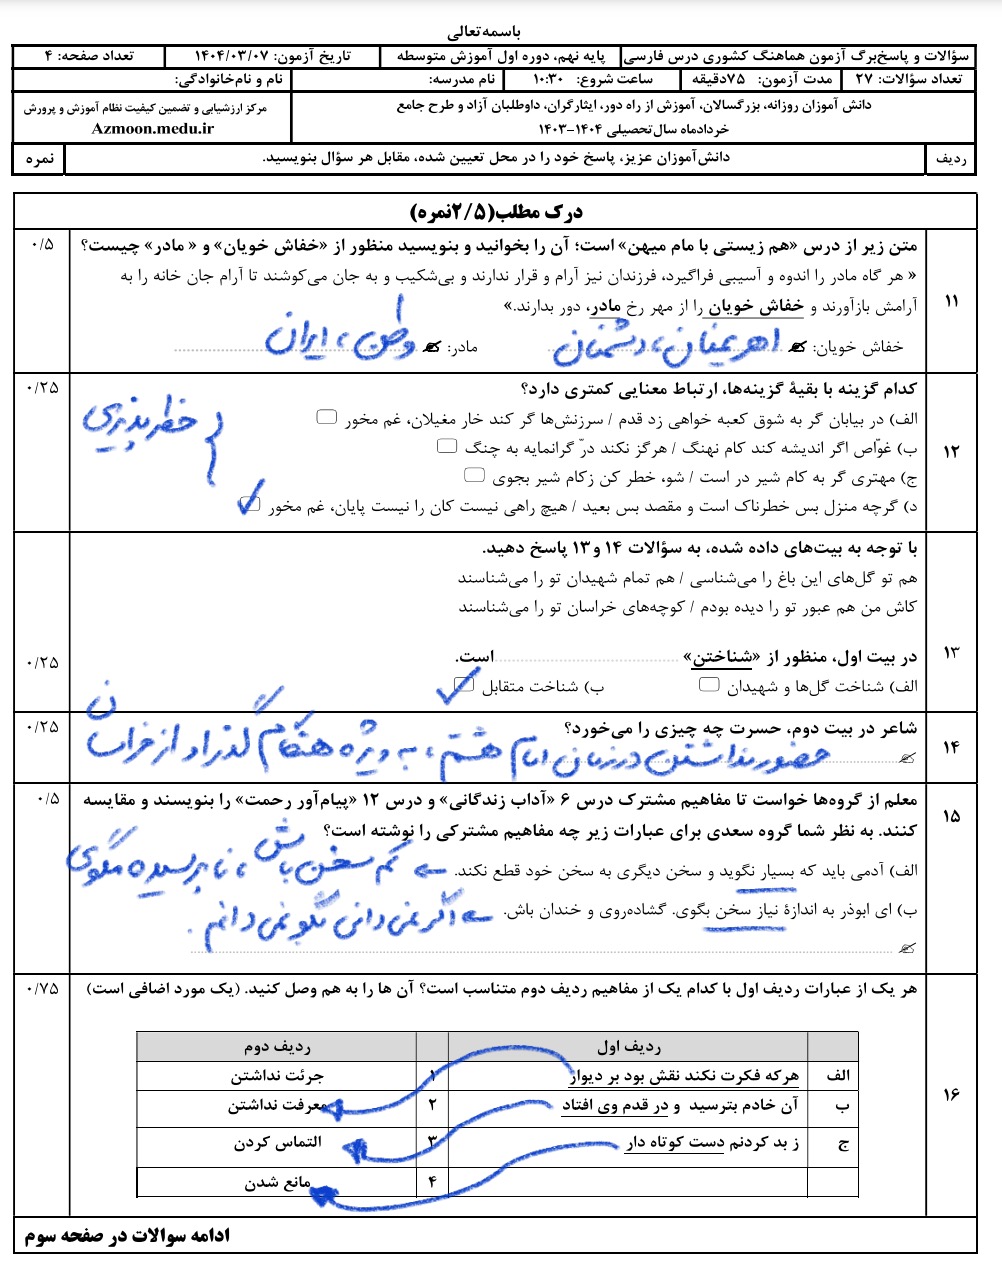 باسمه‌تعالی
سؤالات و پاسخ‌برگ آزمون هماهنگ کشوری درس فارسی
پایه نهم، دوره اول آموزش متوسطه
تاریخ آزمون: ۱۴۰۴/۰۳/۰۷
تعداد صفحه: ۴
تعداد سؤالات: ۲۷
مدت آزمون: ۷۵دقیقه
ساعت شروع: ۱۰:۳۰
نام مدرسه:
نام و نام‌خانوادگی:
دانش آموزان روزانه، بزرگسالان، آموزش از راه دور، ایثارگران، داوطلبان آزاد و طرح جامع
خردادماه سال‌تحصیلی ۱۴۰۴-۱۴۰۳
مرکز ارزشیابی و تضمین کیفیت نظام آموزش و پرورش
Azmoon.medu.ir
ردیف
دانش‌آموزان عزیز، پاسخ خود را در محل تعیین شده، مقابل هر سؤال بنویسید.
نمره
درک مطلب(۲/۵نمره)
۱۱
متن زیر از درس «هم زیستی با مام میهن» است؛ آن را بخوانید و بنویسید منظور از «خفاش خویان» و « مادر» چیست؟
۰/۵
« هر گاه مادر را اندوه و آسیبی فراگیرد، فرزندان نیز آرام و قرار ندارند و بی‌شکیب و به جان می‌کوشند تا آرام جان خانه را به
آرامش بازآورند و خفاش خویان را از مهر رخ مادر، دور بدارند.»
خفاش خویان: اهریمنان، دشمنان
مادر: وطن، ایران
۱۲
کدام گزینه با بقیهٔ گزینه‌ها، ارتباط معنایی کمتری دارد؟
۰/۲۵
الف) در بیابان گر به شوق کعبه خواهی زد قدم / سرزنش‌ها گر کند خار مغیلان، غم مخور
ب) غوّاص اگر اندیشه کند کام نهنگ / هرگز نکند درّ گرانمایه به چنگ
ج) مهتری گر به کام شیر در است / شو، خطر کن زکام شیر بجوی
خطرپذیری
د) گرچه منزل بس خطرناک است و مقصد بس بعید / هیچ راهی نیست کان را نیست پایان، غم مخور
با توجه به بیت‌های داده شده، به سؤالات ۱۳و ۱۴ پاسخ دهید.
هم تو گل‌های این باغ را می‌شناسی / هم تمام شهیدان تو را می‌شناسند
کاش من هم عبور تو را دیده بودم / کوچه‌های خراسان تو را می‌شناسند
۱۳
در بیت اول، منظور از «شناختن» است.
۰/۲۵
الف) شناخت گل‌ها و شهیدان
ب) شناخت متقابل
۱۴
شاعر در بیت دوم، حسرت چه چیزی را می‌خورد؟
۰/۲۵
حضور نداشتن در زمان امام هشتم، به ویژه هنگام گذر او از خراسان
۱۵
معلم از گروه‌ها خواست تا مفاهیم مشترک درس ۶ «آداب زندگانی» و درس ۱۲ «پیام‌آور رحمت» را بنویسند و مقایسه
۰/۵
کنند. به نظر شما گروه سعدی برای عبارات زیر چه مفاهیم مشترکی را نوشته است؟
الف) آدمی باید که بسیار نگوید و سخن دیگری به سخن خود قطع نکند. ← کم سخن باش، ناپرسیده مگوی
ب) ای ابوذر به اندازهٔ نیاز سخن بگوی. گشاده‌روی و خندان باش. ← اگر نمی‌دانی نگو نمی‌دانم.
۱۶
هر یک از عبارات ردیف اول با کدام یک از مفاهیم ردیف دوم متناسب است؟ آن ها را به هم وصل کنید. (یک مورد اضافی است)
۰/۷۵
ردیف اول
ردیف دوم
الف هرکه فکرت نکند نقش بود بر دیوار ۱ جرئت نداشتن
ب آن خادم بترسید و در قدم وی افتاد ۲ معرفت نداشتن
ج ز بد کردنم دست کوتاه دار ۳ التماس کردن
۴ مانع شدن
ادامه سوالات در صفحه سوم